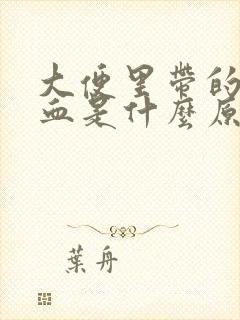 大便里带的
血是什麼原
葉舟